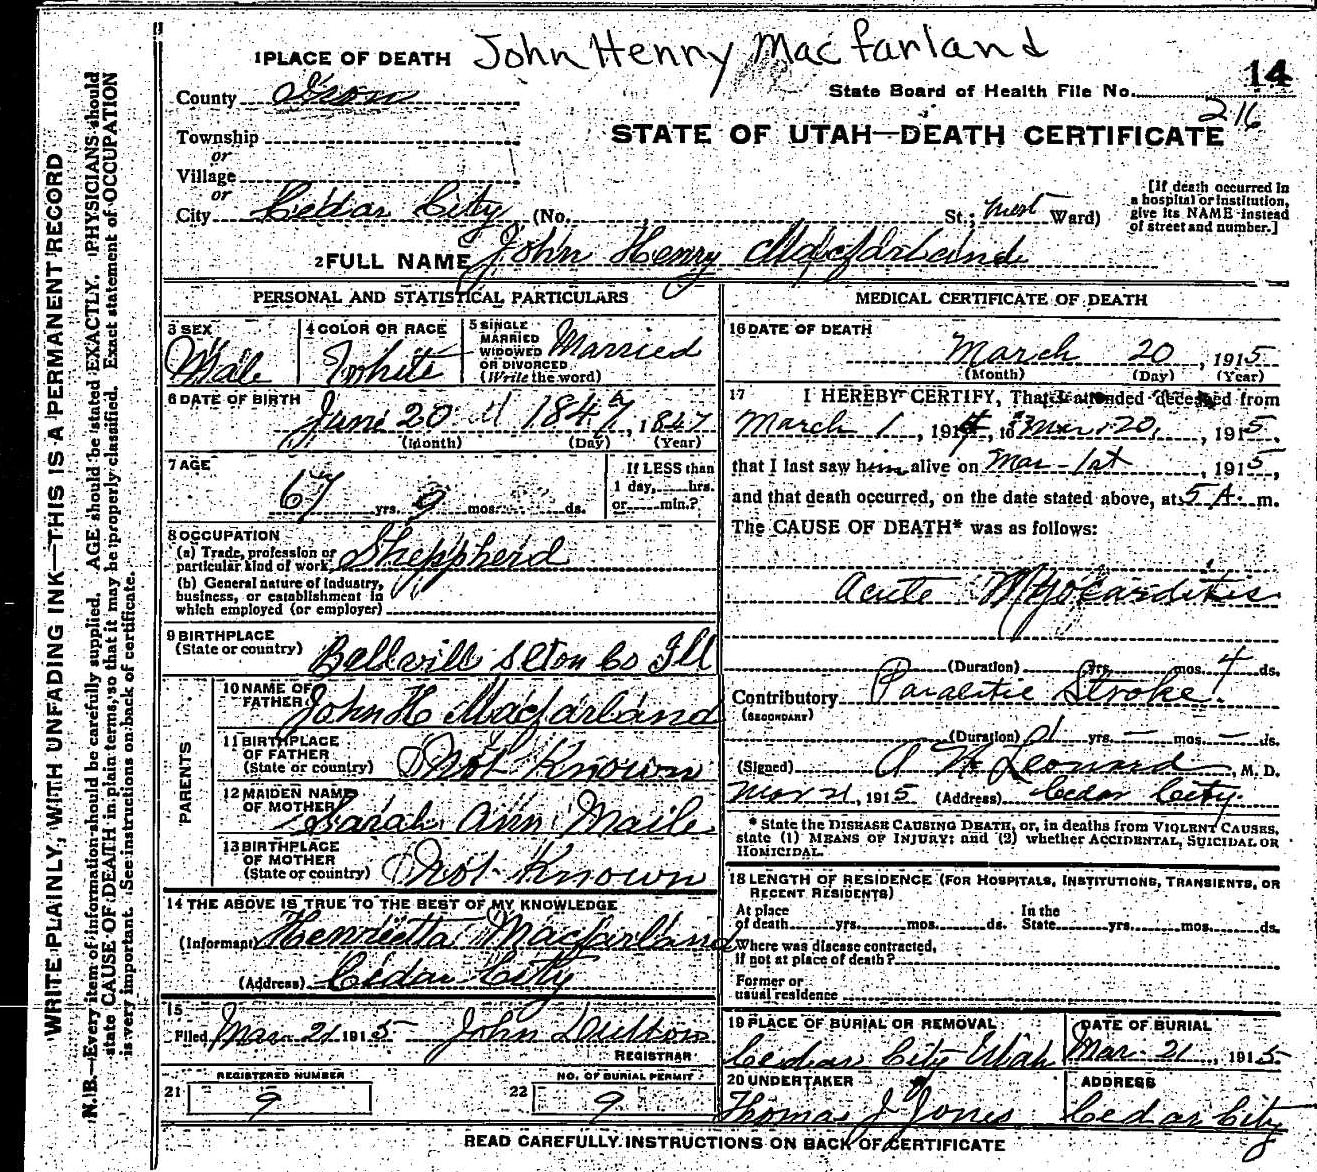 John Henry Macfarland
1 PLACE OF DEATH
14
County Iron
State Board of Health File No.
216
Township
STATE OF UTAH—DEATH CERTIFICATE
or
Village
or
City Cedar City (No. , St.; West Ward)
[If death occurred in
a hospital or institution,
give its NAME instead
of street and number.]
2 FULL NAME John Henry Macfarland
PERSONAL AND STATISTICAL PARTICULARS
3 SEX
Male
4 COLOR OR RACE
White
5 SINGLE
MARRIED
WIDOWED
OR DIVORCED
(Write the word)
Married
6 DATE OF BIRTH
June 20 1847, 1847
(Month) (Day) (Year)
7 AGE
67 yrs. 9 mos. ds.
If LESS than
1 day, hrs.
or min.?
8 OCCUPATION
(a) Trade, profession or
particular kind of work, Sheppherd
(b) General nature of industry,
business, or establishment in
which employed (or employer)
9 BIRTHPLACE
(State or country) Bellvill Co Ill
PARENTS
10 NAME OF
FATHER John H Macfarland
11 BIRTHPLACE
OF FATHER
(State or country) Not Known
12 MAIDEN NAME
OF MOTHER Sarah Ann Maile
13 BIRTHPLACE
OF MOTHER
(State or country) Not Known
14 THE ABOVE IS TRUE TO THE BEST OF MY KNOWLEDGE
(Informant Henrietta Macfarland
(Address) Cedar City
15
Filed Mar 21 1915 John
REGISTRAR
REGISTERED NUMBER
21 9
NO. OF BURIAL PERMIT
22 9
MEDICAL CERTIFICATE OF DEATH
16 DATE OF DEATH
March 20, 1915
(Month) (Day) (Year)
17 I HEREBY CERTIFY, That I attended deceased from
March 1, 191, to Mar 20, 1915,
that I last saw him alive on Mar - 1st, 1915,
and that death occurred, on the date stated above, at 5 A. m.
The CAUSE OF DEATH* was as follows:
Acute Myocarditis
(Duration) yrs. mos. 4 ds.
Contributory Paralitic Stroke.
(SECONDARY)
(Duration) 1 yrs. — mos. — ds.
(Signed) A N Leonard, M. D.
Mar 21, 1915 (Address) Cedar City.
* State the DISEASE CAUSING DEATH, or, in deaths from VIOLENT CAUSES,
state (1) MEANS OF INJURY; and (2) whether ACCIDENTAL, SUICIDAL OR
HOMICIDAL.
18 LENGTH OF RESIDENCE (FOR HOSPITALS, INSTITUTIONS, TRANSIENTS, OR
RECENT RESIDENTS)
At place
of death yrs. mos. ds.
In the
State yrs. mos. ds.
Where was disease contracted,
If not at place of death?
Former or
usual residence
19 PLACE OF BURIAL OR REMOVAL
Cedar City Utah
DATE OF BURIAL
Mar. 21, 1915
20 UNDERTAKER
Thomas J Jones
ADDRESS
Cedar City
READ CAREFULLY INSTRUCTIONS ON BACK OF CERTIFICATE
WRITE PLAINLY, WITH UNFADING INK—THIS IS A PERMANENT RECORD
N. B.—Every item of information should be carefully supplied. AGE should be stated EXACTLY. PHYSICIANS should
state CAUSE OF DEATH in plain terms, so that it may be properly classified. Exact statement of OCCUPATION
is very important. See instructions on back of certificate.